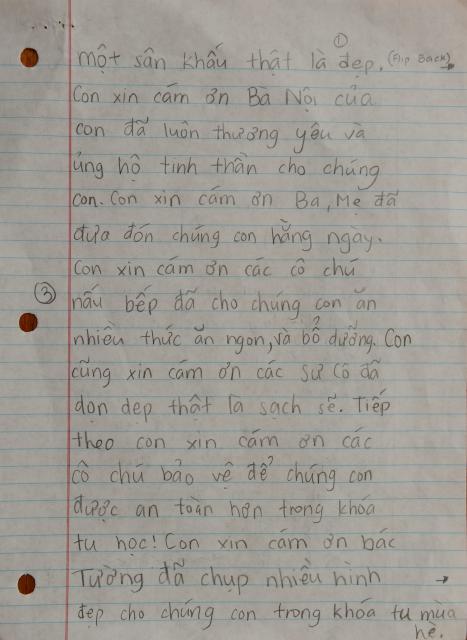 ①
một sân khấu thật là đẹp. (Flip Back) →
Con xin cám ơn Bà Nội của
con đã luôn thương yêu và
ủng hộ tinh thần cho chúng
con. Con xin cám ơn Ba, Mẹ đã
đưa đón chúng con hằng ngày.
Con xin cám ơn các cô chú
③ nấu bếp đã cho chúng con ăn
nhiều thức ăn ngon, và bổ dưỡng. Con
cũng xin cám ơn các Sư Cô đã
dọn dẹp thật là sạch sẽ. Tiếp
theo con xin cám ơn các
cô chú bảo vệ để chúng con
được an toàn hơn trong khóa
tu học! Con xin cám ơn bác
Tường đã chụp nhiều hình →
đẹp cho chúng con trong khóa tu mùa
hè.